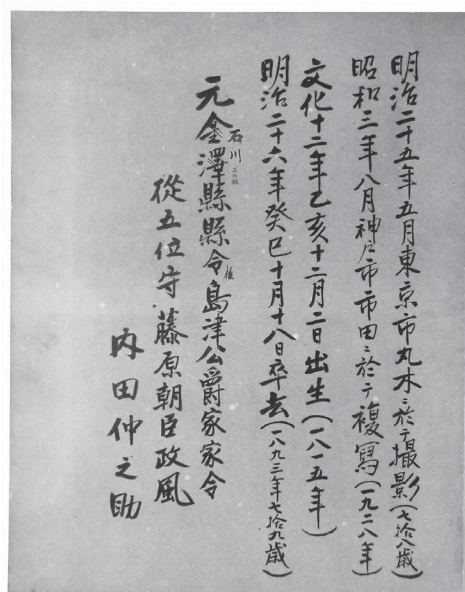 明治二十五年五月東京市丸木ニ於テ撮影（七拾八歳）
昭和三年八月神戸市市田ニ於テ複寫（一九二八年）
文化十二年乙亥十二月二日出生（一八一五年）
明治二十六年癸巳十月十八日卒去（一八九三年七拾九歳）
石川
元金澤縣縣令後島津公爵家家令
從五位守藤原朝臣政風
内田仲之助